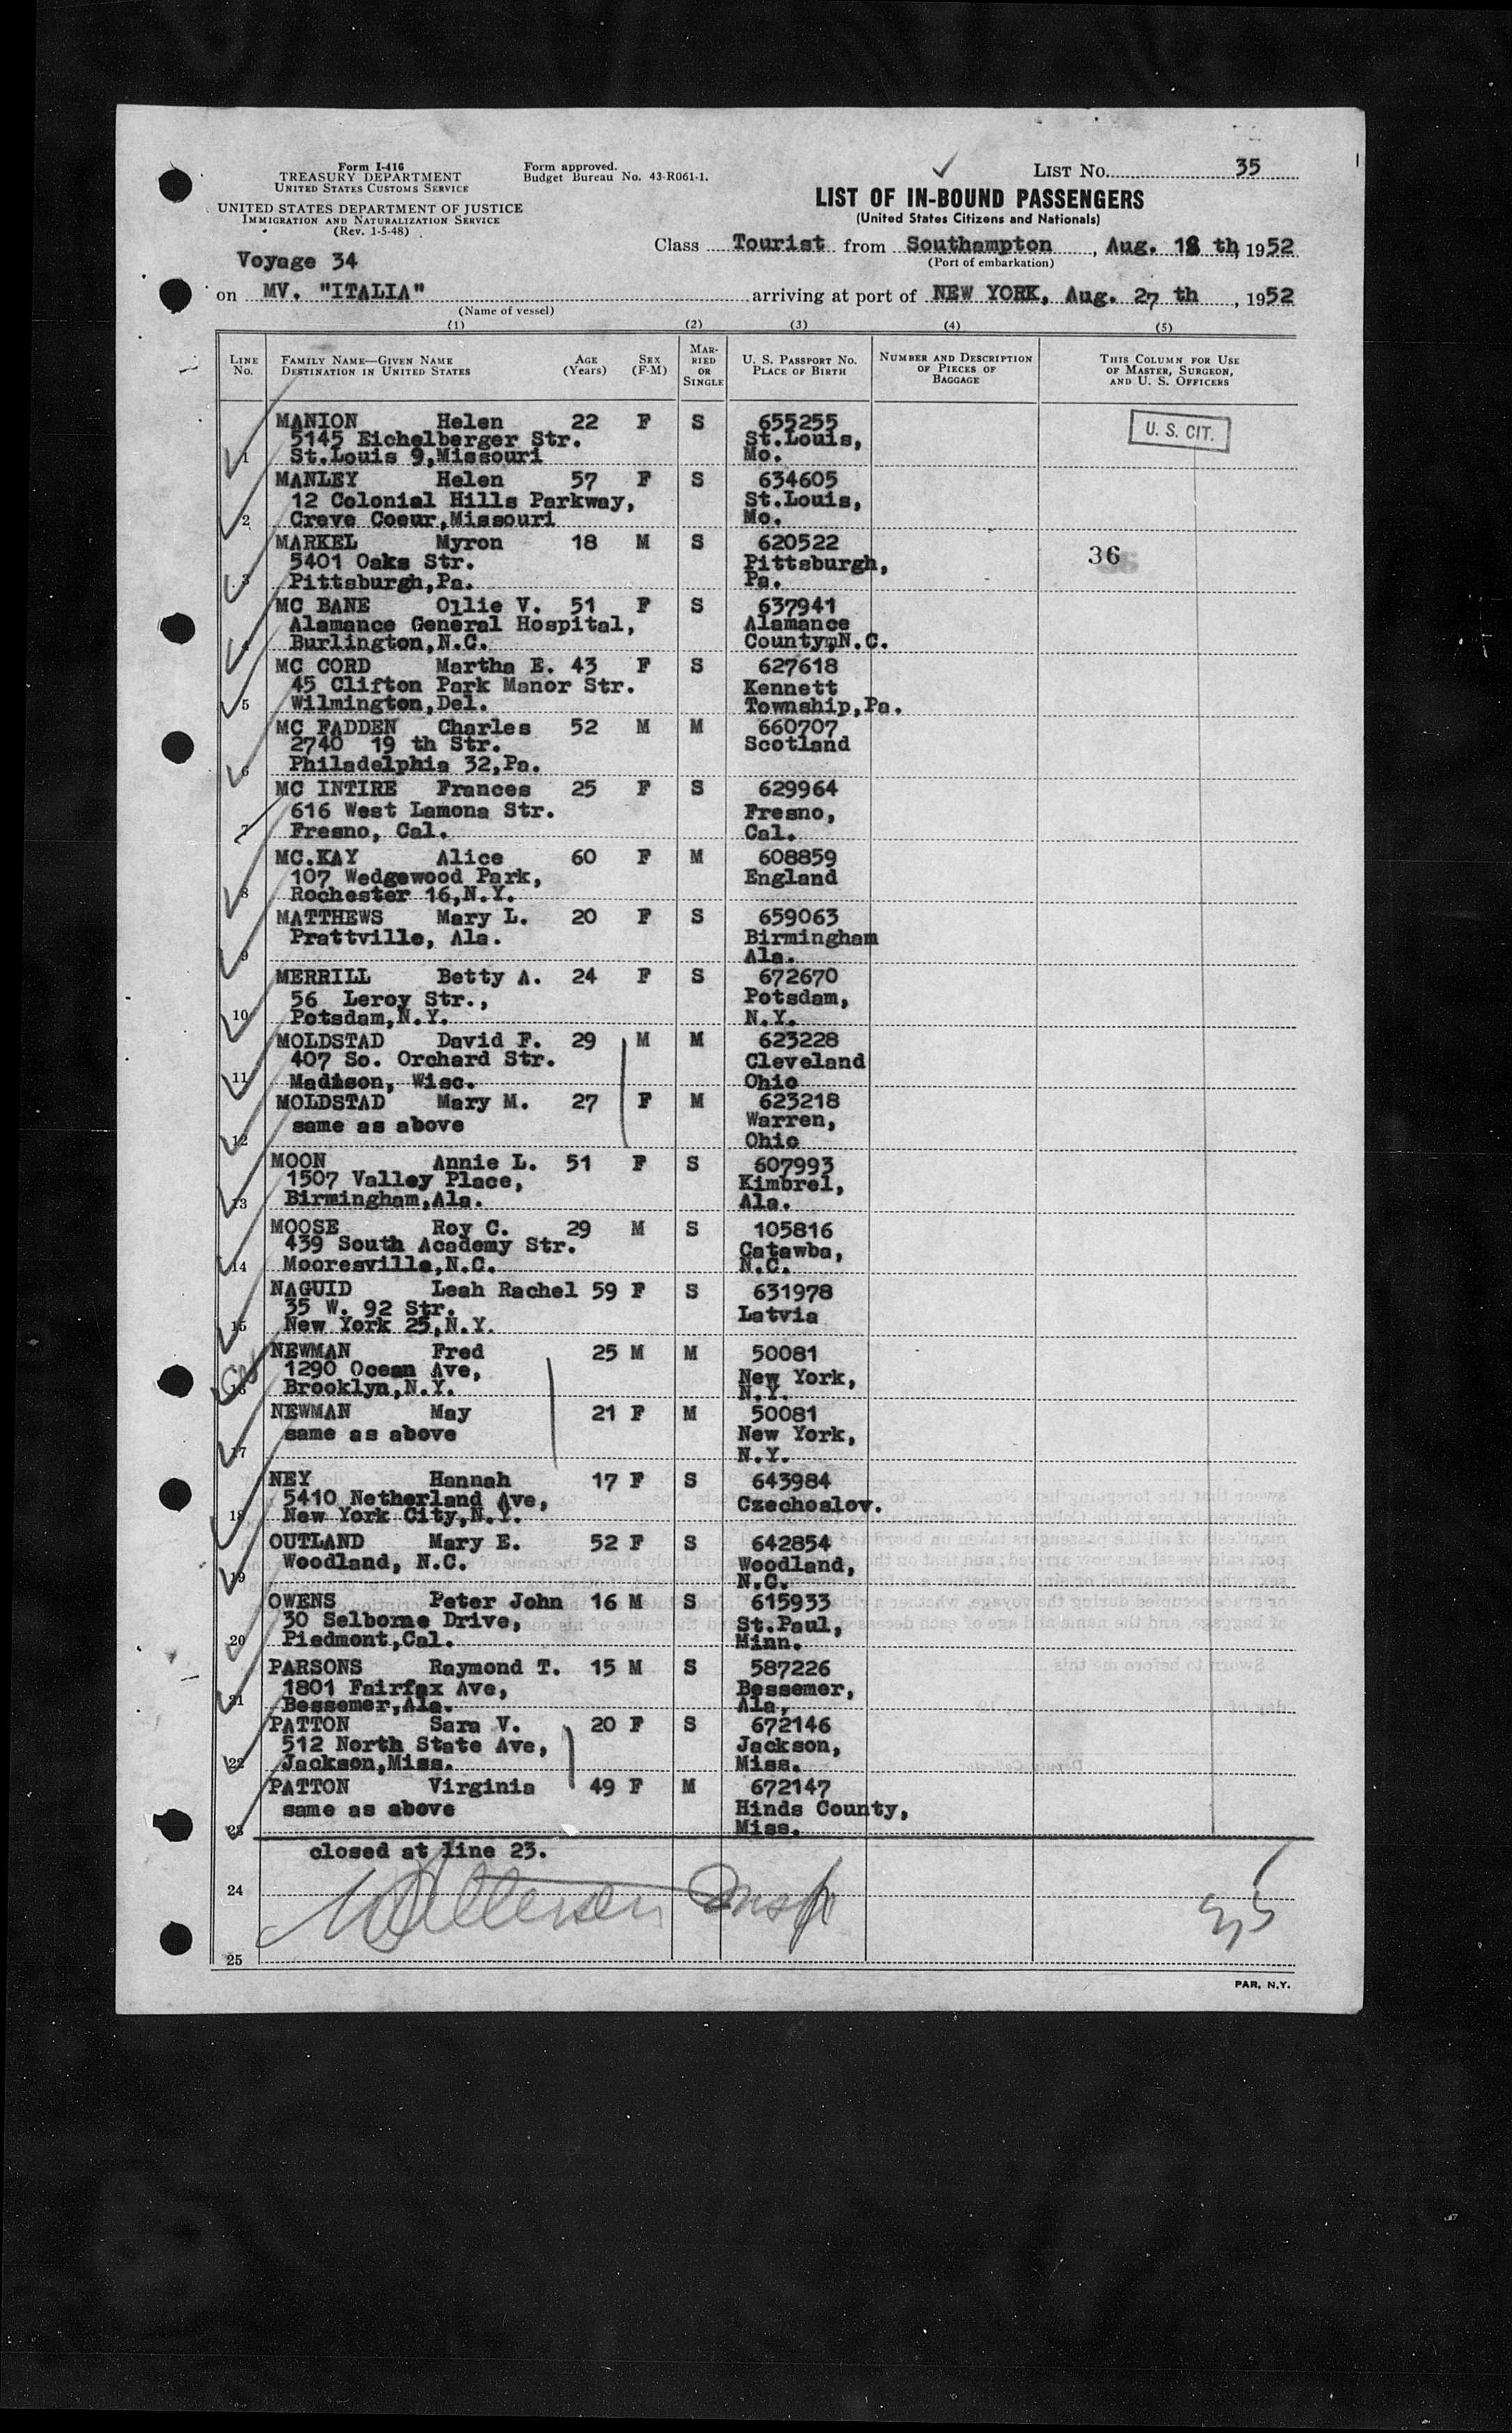 Form I-416
TREASURY DEPARTMENT
UNITED STATES CUSTOMS SERVICE
UNITED STATES DEPARTMENT OF JUSTICE
IMMIGRATION AND NATURALIZATION SERVICE
(Rev. 1-5-48)
Form approved.
Budget Bureau No. 43-R061-1.
LIST No. 35
LIST OF IN-BOUND PASSENGERS
(United States Citizens and Nationals)
Class Tourist from Southampton, Aug. 18 th, 1952
(Port of embarkation)
Voyage 34
on MV. "ITALIA" arriving at port of NEW YORK, Aug. 27 th, 1952
(Name of vessel)
(1) (2) (3) (4) (5)
LINE No. FAMILY NAME—GIVEN NAME DESTINATION IN UNITED STATES AGE (Years) SEX (F-M) MARRIED OR SINGLE U. S. PASSPORT No. PLACE OF BIRTH NUMBER AND DESCRIPTION OF PIECES OF BAGGAGE THIS COLUMN FOR USE OF MASTER, SURGEON, AND U. S. OFFICERS
MANION Helen 22 F S 655255 U. S. CIT.
5145 Eichelberger Str. St.Louis,
1 St.Louis 9,Missouri Mo.
MANLEY Helen 57 F S 634605
12 Colonial Hills Parkway, St.Louis,
2 Creve Coeur,Missouri Mo.
MARKEL Myron 18 M S 620522 36
5401 Oaks Str. Pittsburgh,
3 Pittsburgh,Pa. Pa.
MC BANE Ollie V. 51 F S 637941
Alamance General Hospital, Alamance
4 Burlington,N.C. County,N.C.
MC CORD Martha E. 43 F S 627618
45 Clifton Park Manor Str. Kennett
5 Wilmington,Del. Township,Pa.
MC FADDEN Charles 52 M M 660707
2740 19 th Str. Scotland
6 Philadelphia 32,Pa.
MC INTIRE Frances 25 F S 629964
616 West Lamona Str. Fresno,
7 Fresno, Cal. Cal.
MC.KAY Alice 60 F M 608859
107 Wedgewood Park, England
8 Rochester 16,N.Y.
MATTHEWS Mary L. 20 F S 659063
Prattville, Ala. Birmingham
9 Ala.
MERRILL Betty A. 24 F S 672670
56 Leroy Str., Potsdam,
10 Potsdam,N.Y. N.Y.
MOLDSTAD David F. 29 M M 623228
407 So. Orchard Str. Cleveland
11 Madison, Wisc. Ohio
MOLDSTAD Mary M. 27 F M 623218
same as above Warren,
12 Ohio
MOON Annie L. 51 F S 607993
1507 Valley Place, Kimbrel,
13 Birmingham,Ala. Ala.
MOOSE Roy C. 29 M S 105816
439 South Academy Str. Catawba,
14 Mooresville,N.C. N.C.
NAGUID Leah Rachel 59 F S 631978
35 W. 92 Str. Latvia
15 New York 25,N.Y.
NEWMAN Fred 25 M M 50081
1290 Ocean Ave, New York,
16 Brooklyn,N.Y. N.Y.
NEWMAN May 21 F M 50081
same as above New York,
17 N.Y.
NEY Hannah 17 F S 643984
5410 Netherland Ave, Czechoslov.
18 New York City,N.Y.
OUTLAND Mary E. 52 F S 642854
Woodland, N.C. Woodland,
19 N.C.
OWENS Peter John 16 M S 615933
30 Selborne Drive, St.Paul,
20 Piedmont,Cal. Minn.
PARSONS Raymond T. 15 M S 587226
1801 Fairfax Ave, Bessemer,
21 Bessemer,Ala. Ala,
PATTON Sara V. 20 F S 672146
512 North State Ave, Jackson,
22 Jackson,Miss. Miss.
PATTON Virginia 49 F M 672147
same as above Hinds County,
23 Miss.
closed at line 23.
24
Insp
25
PAR, N.Y.